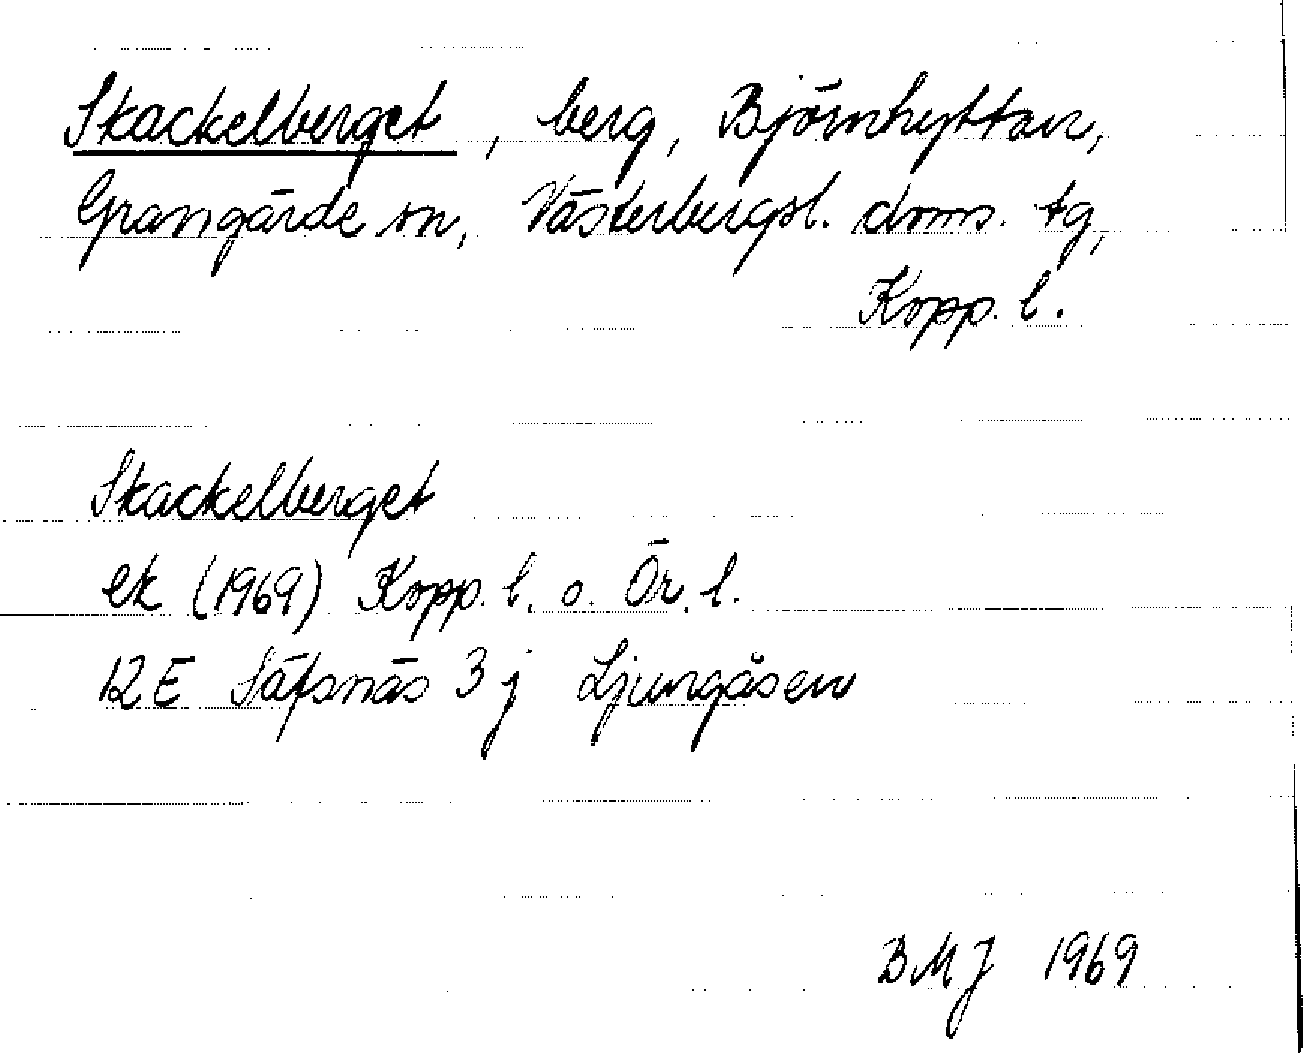 Skackelberget, berg, Björnhyttan,
Grangärde sn, Västerbergsl. doms. tg,
Kopp. l.
Skackelberget
ek (1969) Kopp. l. o. Ör. l.
12E Säfsnäs 3j Ljungåsen
BMJ 1969